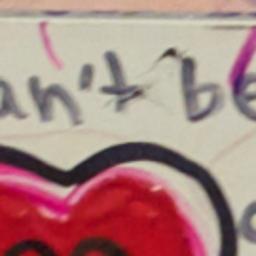 an't be